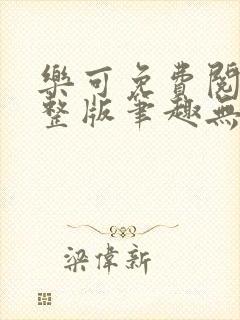 樂可免費閱
整版筆趣無
梁偉新